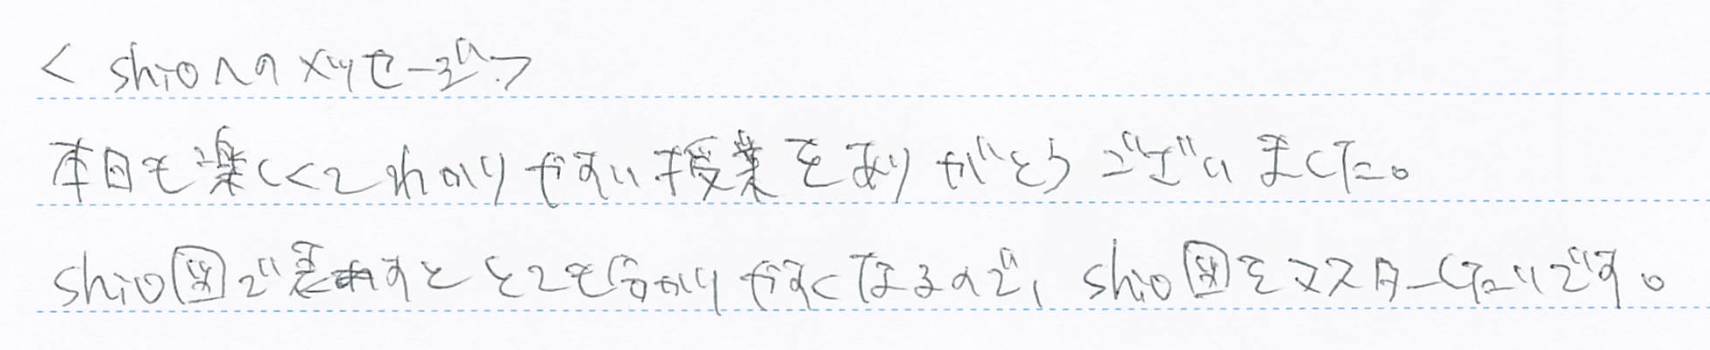 < shioへのメッセージ >
本日も楽しくてわかりやすい授業をありがとうございました。
shio図で表すととても分かりやすくなるので、shio図をマスターしたいです。